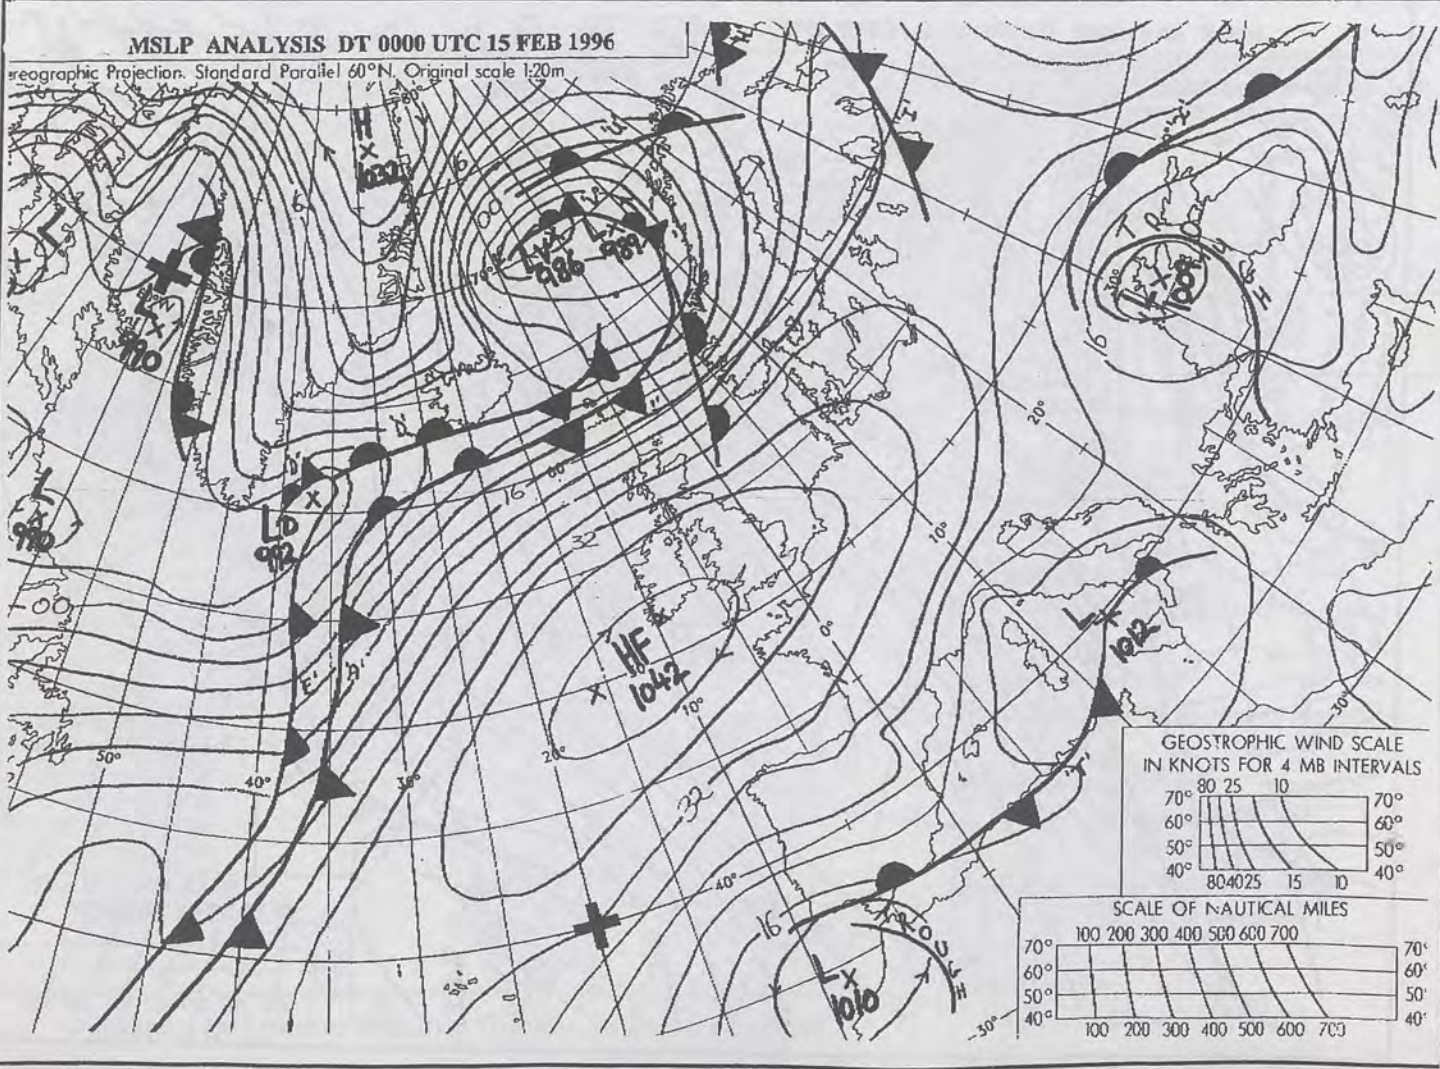 MSLP ANALYSIS DT 0000 UTC 15 FEB 1996
ereographic Projection. Standard Parallel 60°N. Original scale 1:20m
80°
H
1032
L
L
990
L
990
00
L
986
L
989
70°
16
T R O U G H
L
1004
16
20°
10°
0°
D'
LD
992
16
00
32
HF
1042
10°
20°
30°
40°
50°
E'
A'
32
40°
16
T R O U G H
L
1010
30°
L
1012
30°
GEOSTROPHIC WIND SCALE
IN KNOTS FOR 4 MB INTERVALS
80 25 10
70° 70°
60° 60°
50° 50°
40° 40°
80 40 25 15 10
SCALE OF NAUTICAL MILES
100 200 300 400 500 600 700
70° 70°
60° 60°
50° 50°
40° 40°
100 200 300 400 500 600 700